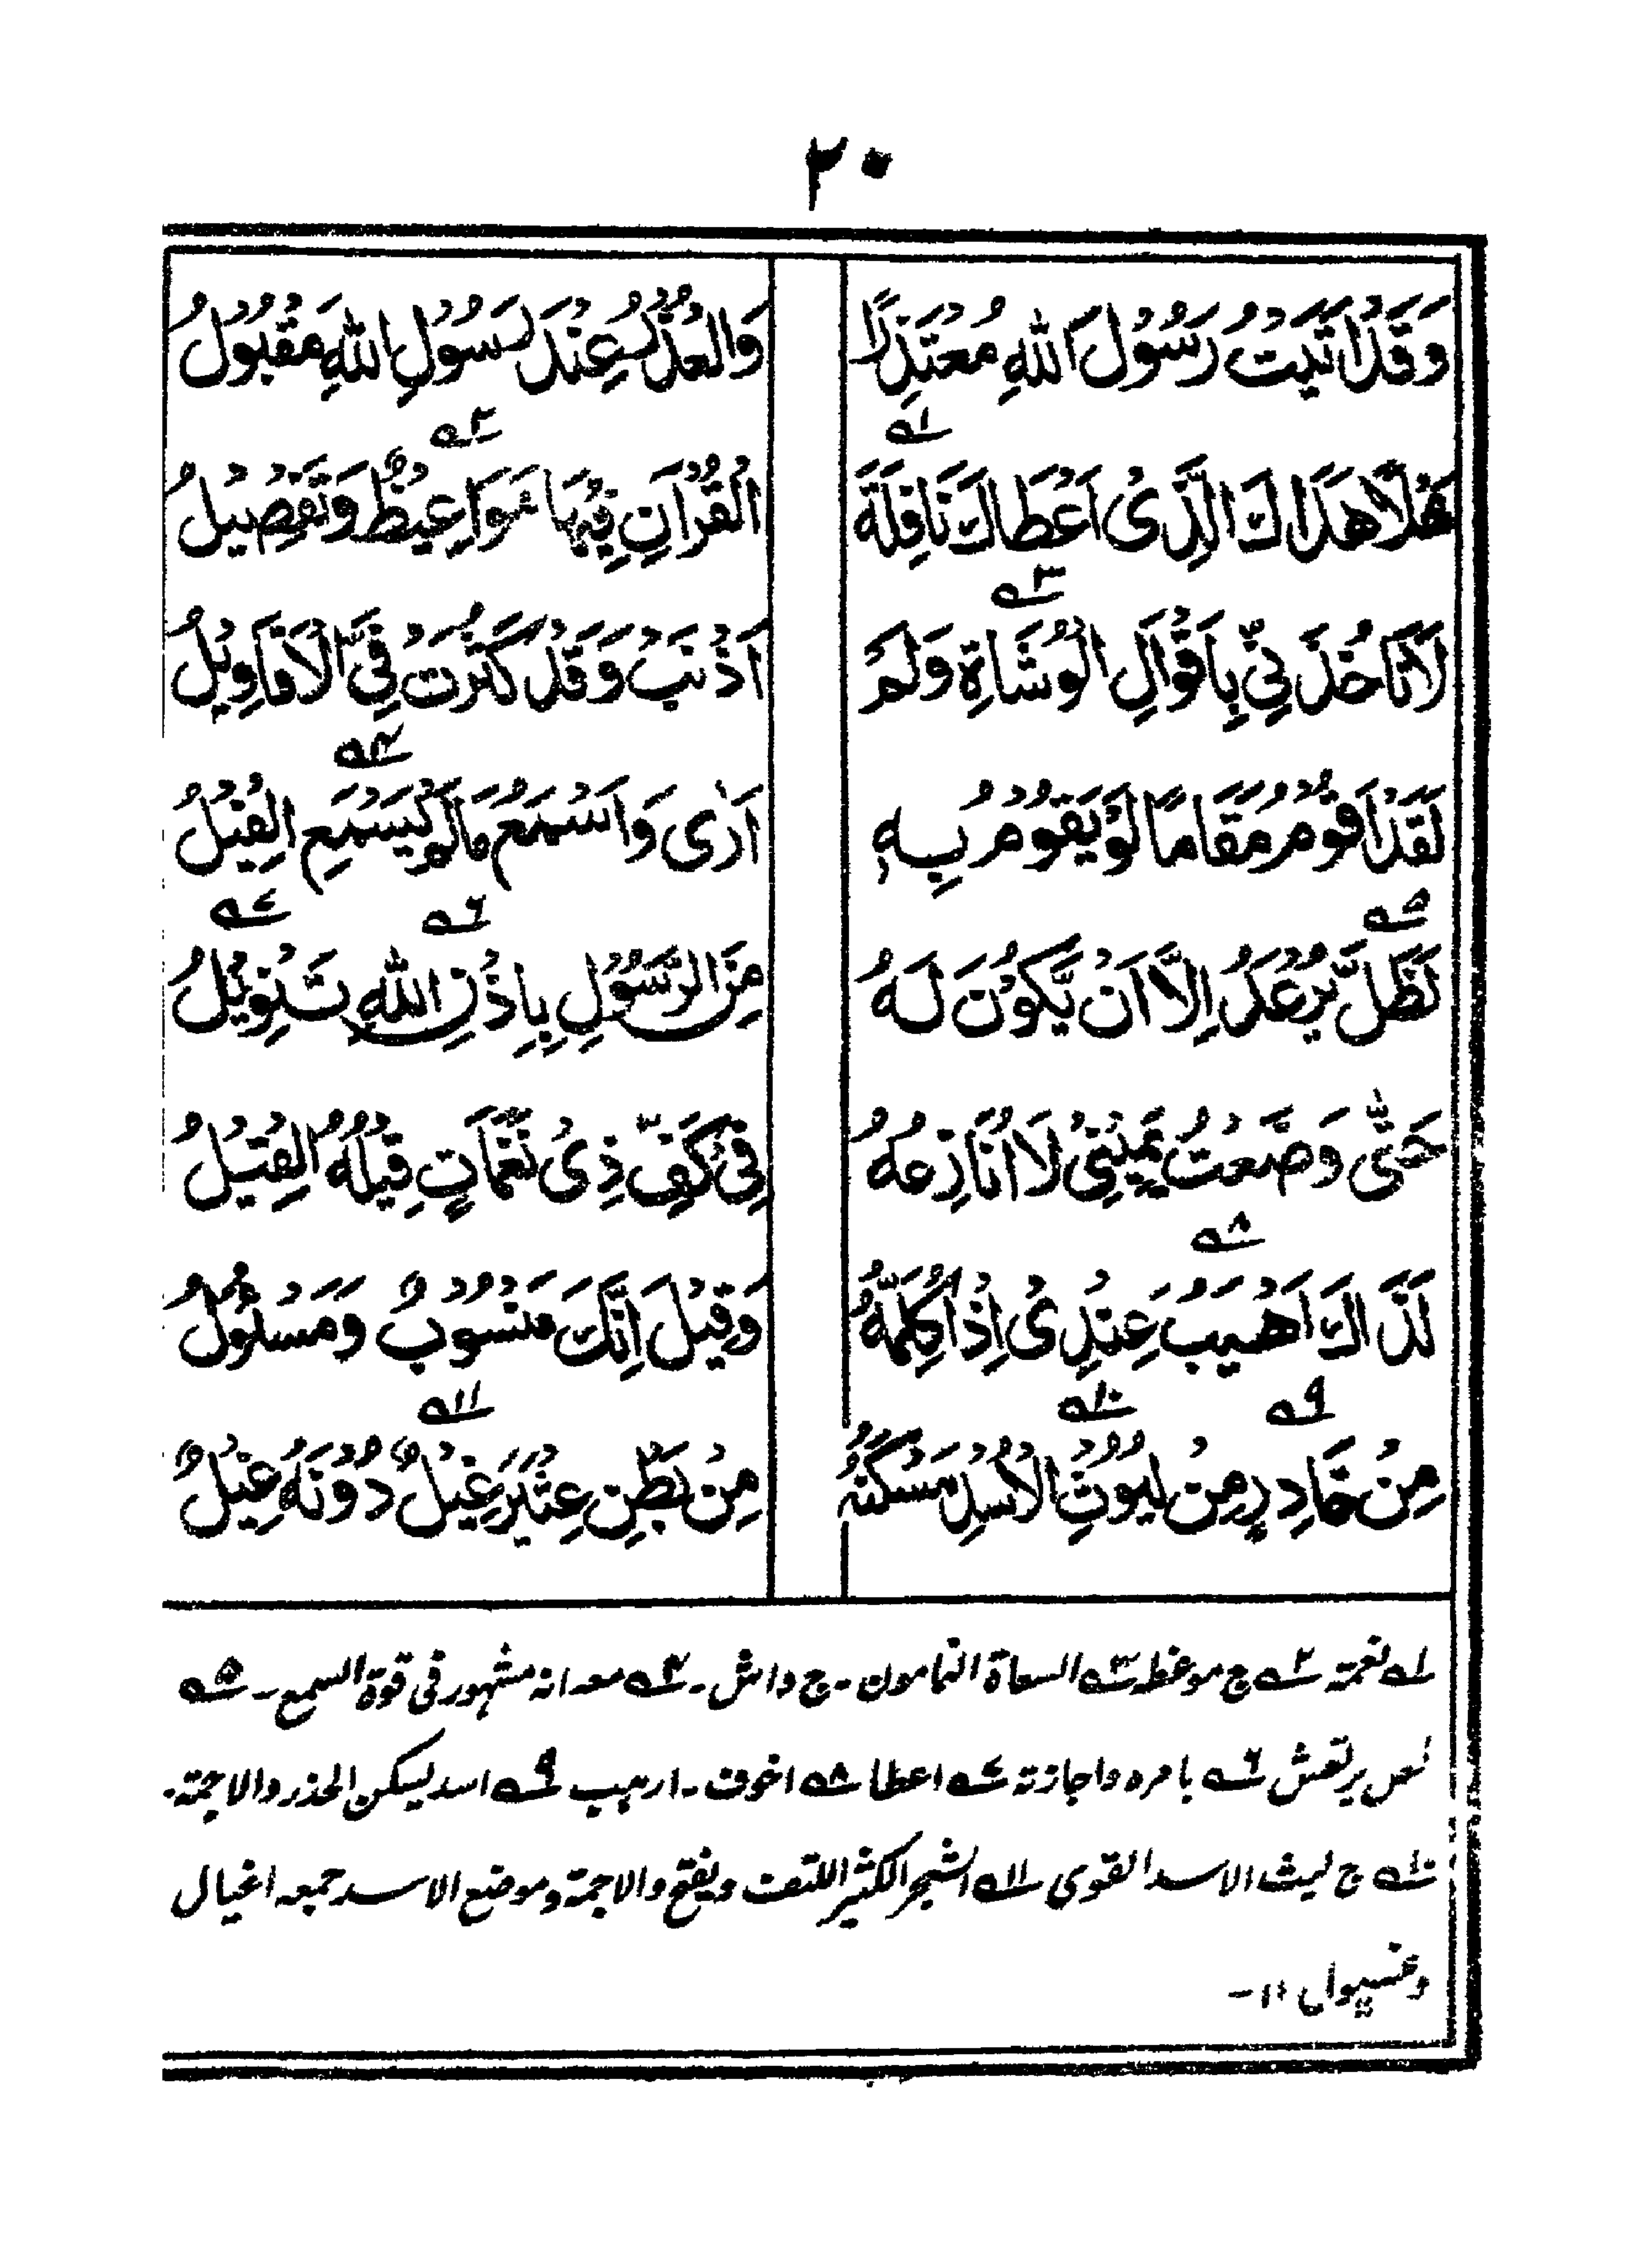 ٢٠
وَقَدْ اَتَيْتُ رَسُوْلَ اللهِ مُعْتَذِرًا وَالْعُذْرُ عِنْدَ رَسُوْلِ اللهِ مَقْبُوْلُ
هَلًا هَدَاكَ الَّذِىْ اَعْطَاكَ نَافِلَةَ الْقُرْاٰنِ فِيْهَا مَوَاعِيْظٌ وَتَفْصِيْلُ
لَا تَاخُذَنِّىْ بِاَقْوَالِ الْوُشَاةِ وَلَمْ اَذْنَبْ وَقَدْ كَثُرَتْ فِىَّ الْاَقَاوِيْلُ
لَقَدْ اَقُوْمُ مَقَامًا لَوْ يَقُوْمُ بِهٖ اَرٰى وَاَسْمَعُ مَا لَمْ يَسْمَعِ الْفِيْلُ
لَظَلَّ يُرْعَدُ اِلَّا اَنْ يَّكُوْنَ لَهُ مِنَ الرَّسُوْلِ بِاِذْنِ اللهِ تَنْوِيْلُ
حَتّٰى وَضَعْتُ يَمِيْنِىْ لَا اُنَازِعُهُ فِىْ كَفِّ ذِىْ نَغَمَاتٍ قِيْلُهُ الْقِيْلُ
لَذَاكَ اَهْيَبُ عِنْدِىْ اِذْ اُكَلِّمُهُ وَقِيْلَ اِنَّكَ مَنْسُوْبٌ وَمَسْئُوْلُ
مِنْ خَادِرٍ مِنْ لُيُوْثِ الْاُسْدِ مَسْكَنُهُ مِنْ بَطْنِ عِثَّيْرَ غِيْلٌ دُوْنَهُ غِيْلٌ
١؎ نعمة ٢؎ ج موعظه ٣؎ السعاة النمامون - ج واش - ٤؎ معه انه مشهور فى قوة السمع - ٥؎
يرتعش ٦؎ بامره واجازته ٧؎ اعطا ٨؎ اخوف - ارهب ٩؎ اسد يسكن الخدر والاجمة -
١٠؎ ج ليث الاسد القوى ١١؎ الشجر الكثير الملتف ويفتح والاجمة وموضع الاسد جمعه اغيال
وغيول ١١ -